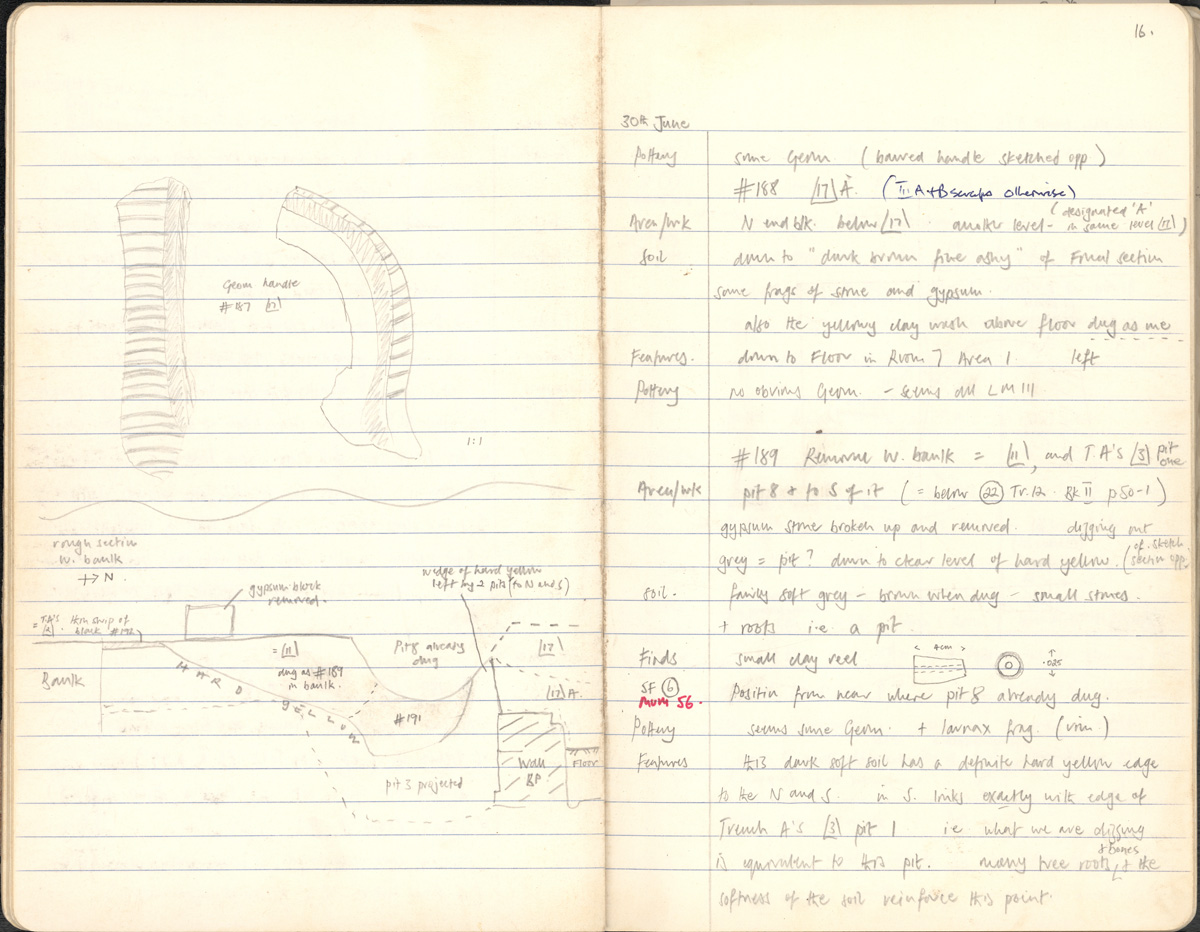 Geom handle
#187 [17]
1:1
rough section
w. baulk
→ N.
gypsum block
removed.
wedge of hard yellow
left by 2 pits (to N and S)
= T.A's thin strip of
[3]. block #192
= [11]
dug as #189
in baulk.
Pit 8 already
dug
[17]
[17] A.
Baulk
HARD
YELLOW
#191
Wall
BP.
FLOOR
pit 3 projected
16.
30th June
Pottery some Geom. (barred handle sketched opp)
#188 [17] A. (III A+B scraps otherwise)
Area/wk N end blk. below [17]. another level - (designated 'A' in same level [17])
Soil down to "dark brown fine ashy" of Final section
some frags of stone and gypsum.
also the yellowy clay wash above floor dug as one
Features. down to Floor in Room 7 Area 1 left
Pottery no obvious Geom. - seems all LM III
#189 Remove W. baulk = [11], and T.A's [3] pit one
Area/wk pit 8 & to S of it (= below (22) Tr.12. Bk II p.50-1)
gypsum stone broken up and removed. digging out
grey = pit? down to clear level of hard yellow. (cf. sketch section opp.
Soil. fairly soft grey - brown when dug - small stones.
+ roots i.e. a pit
Finds small clay reel < 4cm > .025
SF (6) Position from near where pit 8 already dug.
Mum 56.
Pottery seems some Geom. + larnax frag. (rim)
Features this dark soft soil has a definite hard yellow edge
to the N and S. in S. links exactly with edge of
Trench A's [3] pit 1 ie what we are digging
is equivalent to this pit. many tree roots + bones & the
softness of the soil reinforce this point.